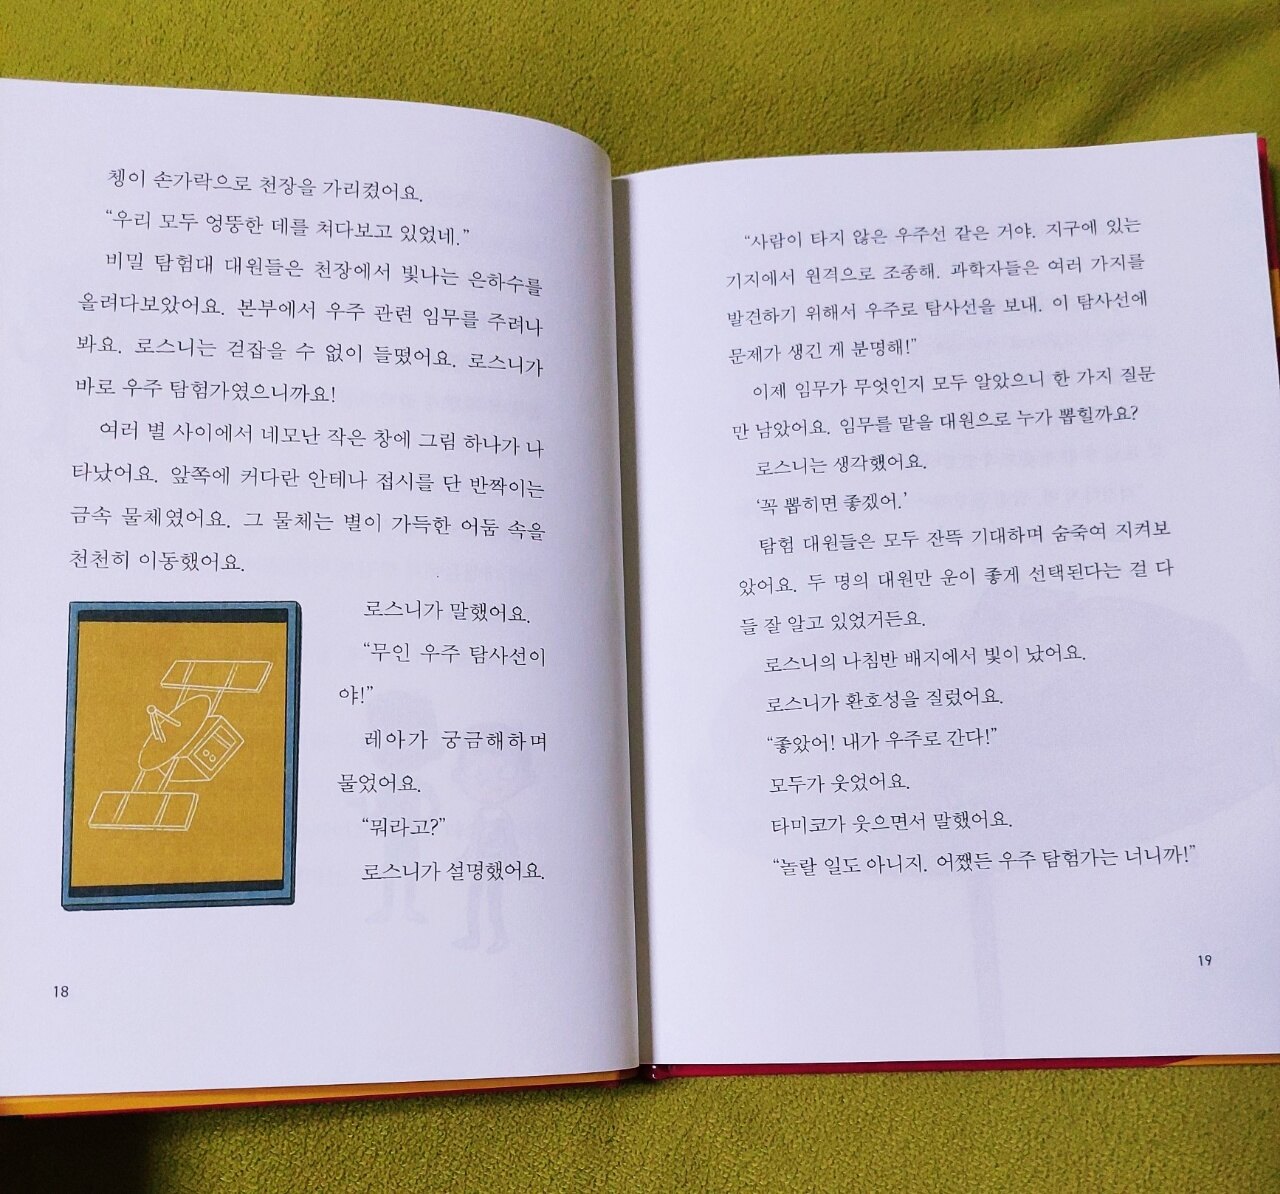 쳉이 손가락으로 천장을 가리켰어요.
“우리 모두 엉뚱한 데를 쳐다보고 있었네.”
비밀 탐험대 대원들은 천장에서 빛나는 은하수를
올려다보았어요. 본부에서 우주 관련 임무를 주려나
봐요. 로스니는 걷잡을 수 없이 들떴어요. 로스니가
바로 우주 탐험가였으니까요!
여러 별 사이에서 네모난 작은 창에 그림 하나가 나
타났어요. 앞쪽에 커다란 안테나 접시를 단 반짝이는
금속 물체였어요. 그 물체는 별이 가득한 어둠 속을
천천히 이동했어요.
로스니가 말했어요.
“무인 우주 탐사선이
야!”
레아가 궁금해하며
물었어요.
“뭐라고?”
로스니가 설명했어요.
18
“사람이 타지 않은 우주선 같은 거야. 지구에 있는
기지에서 원격으로 조종해. 과학자들은 여러 가지를
발견하기 위해서 우주로 탐사선을 보내. 이 탐사선에
문제가 생긴 게 분명해!”
이제 임무가 무엇인지 모두 알았으니 한 가지 질문
만 남았어요. 임무를 맡을 대원으로 누가 뽑힐까요?
로스니는 생각했어요.
‘꼭 뽑히면 좋겠어.’
탐험 대원들은 모두 잔뜩 기대하며 숨죽여 지켜보
았어요. 두 명의 대원만 운이 좋게 선택된다는 걸 다
들 잘 알고 있었거든요.
로스니의 나침반 배지에서 빛이 났어요.
로스니가 환호성을 질렀어요.
“좋았어! 내가 우주로 간다!”
모두가 웃었어요.
타미코가 웃으면서 말했어요.
“놀랄 일도 아니지. 어쨌든 우주 탐험가는 너니까!”
19